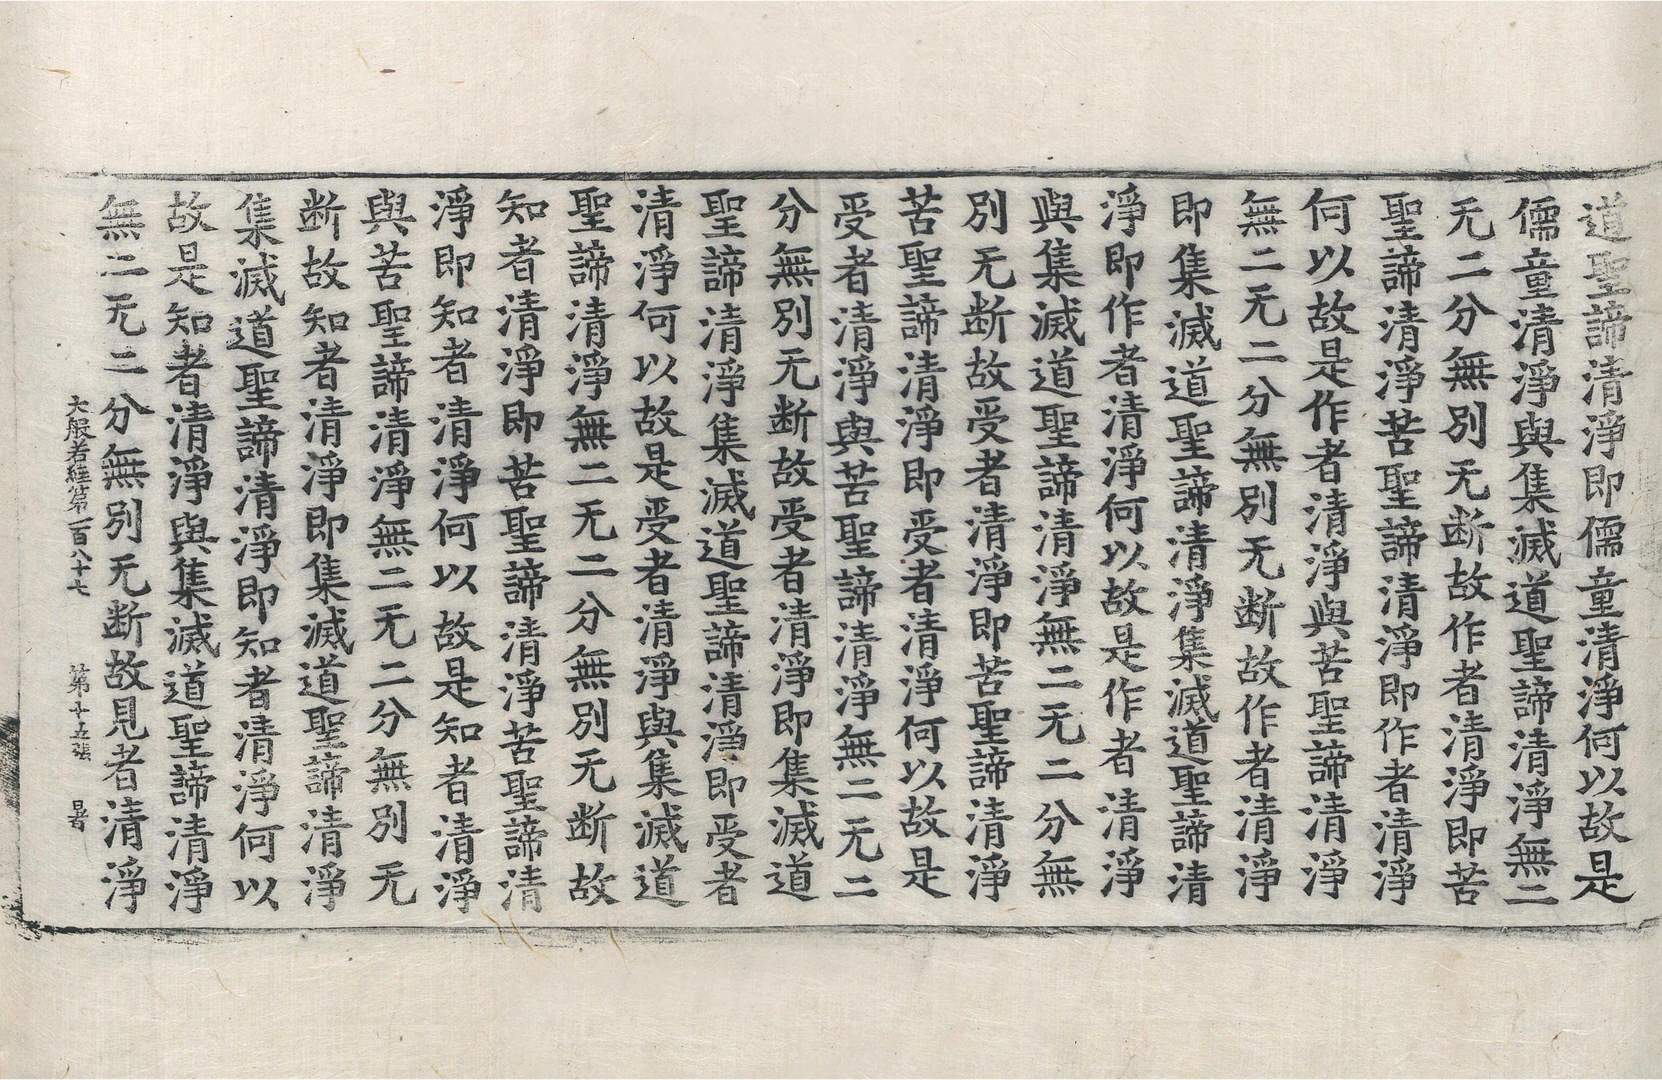 道聖諦清淨即儒童清淨何以故是
儒童清淨與集滅道聖諦清淨無二
无二分無別无断故作者清淨即苦
聖諦清淨苦聖諦清淨即作者清淨
何以故是作者清淨與苦聖諦清淨
無二无二分無別无断故作者清淨
即集滅道聖諦清淨集滅道聖諦清
淨即作者清淨何以故是作者清淨
與集滅道聖諦清淨無二无二分無
別无断故受者清淨即苦聖諦清淨
苦聖諦清淨即受者清淨何以故是
受者清淨與苦聖諦清淨無二无二
分無別无断故受者清淨即集滅道
聖諦清淨集滅道聖諦清淨即受者
清淨何以故是受者清淨與集滅道
聖諦清淨無二无二分無別无断故
知者清淨即苦聖諦清淨苦聖諦清
淨即知者清淨何以故是知者清淨
與苦聖諦清淨無二无二分無別无
断故知者清淨即集滅道聖諦清淨
集滅道聖諦清淨即知者清淨何以
故是知者清淨與集滅道聖諦清淨
無二无二分無別无断故見者清淨
大般若經第一百八十七 第十五張 暑